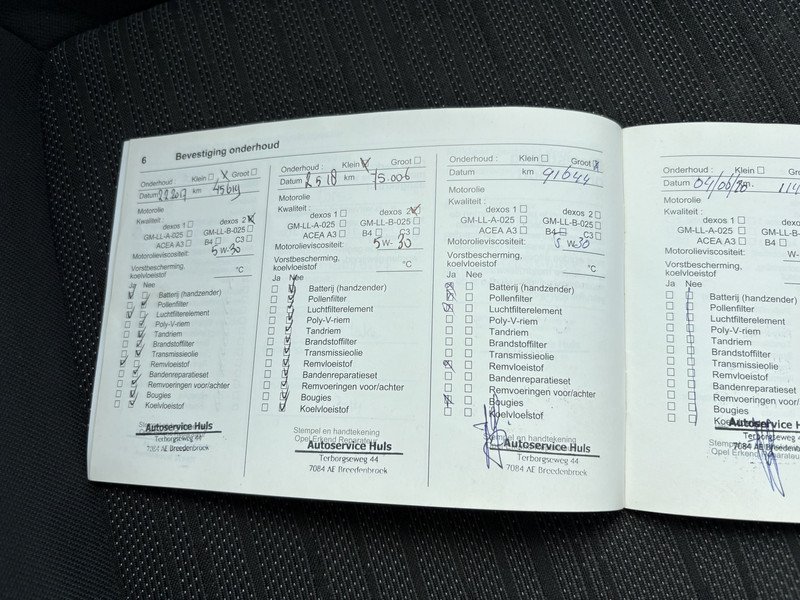 6 Bevestiging onderhoud
Onderhoud : Klein Groot
Datum km 45619
Motorolie
Kwaliteit :
dexos 1 dexos 2
GM-LL-A-025 GM-LL-B-025
ACEA A3 B4 C3
Motorolieviscositeit: 5 W- 30
Vorstbescherming,
koelvloeistof °C
Ja Nee
Batterij (handzender)
Pollenfilter
Luchtfilterelement
Poly-V-riem
Tandriem
Brandstoffilter
Transmissieolie
Remvloeistof
Bandenreparatieset
Remvoeringen voor/achter
Bougies
Koelvloeistof
Autoservice Huls
Terborgseweg 44
7084 AE Breedenbroek
Onderhoud : Klein Groot
Datum 2 5 18 km 75.006
Motorolie
Kwaliteit :
dexos 1 dexos 2
GM-LL-A-025 GM-LL-B-025
ACEA A3 B4 C3
Motorolieviscositeit: 5 W- 30
Vorstbescherming,
koelvloeistof °C
Ja Nee
Batterij (handzender)
Pollenfilter
Luchtfilterelement
Poly-V-riem
Tandriem
Brandstoffilter
Transmissieolie
Remvloeistof
Bandenreparatieset
Remvoeringen voor/achter
Bougies
Koelvloeistof
Stempel en handtekening
Opel Erkend Reparateur
Autoservice Huls
Terborgseweg 44
7084 AE Breedenbroek
Onderhoud : Klein Groot
Datum km 91644
Motorolie
Kwaliteit :
dexos 1 dexos 2
GM-LL-A-025 GM-LL-B-025
ACEA A3 B4 C3
Motorolieviscositeit: 5 W- 30
Vorstbescherming,
koelvloeistof °C
Ja Nee
Batterij (handzender)
Pollenfilter
Luchtfilterelement
Poly-V-riem
Tandriem
Brandstoffilter
Transmissieolie
Remvloeistof
Bandenreparatieset
Remvoeringen voor/achter
Bougies
Koelvloeistof
Stempel en handtekening
Autoservice Huls
Terborgseweg 44
7084 AE Breedenbroek
Onderhoud : Klein Groot
Datum km 114
Motorolie
Kwaliteit :
dexos 1 dexos 2
GM-LL-A-025 GM-LL-B-
ACEA A3 B4
Motorolieviscositeit: W-
Vorstbescherming,
koelvloeistof
Ja Nee
Batterij (handzender)
Pollenfilter
Luchtfilterelement
Poly-V-riem
Tandriem
Brandstoffilter
Transmissieolie
Remvloeistof
Bandenreparatieset
Remvoeringen voor/ach
Bougies
Autoservice H
Terborgseweg 4
7084 AE Breedenb